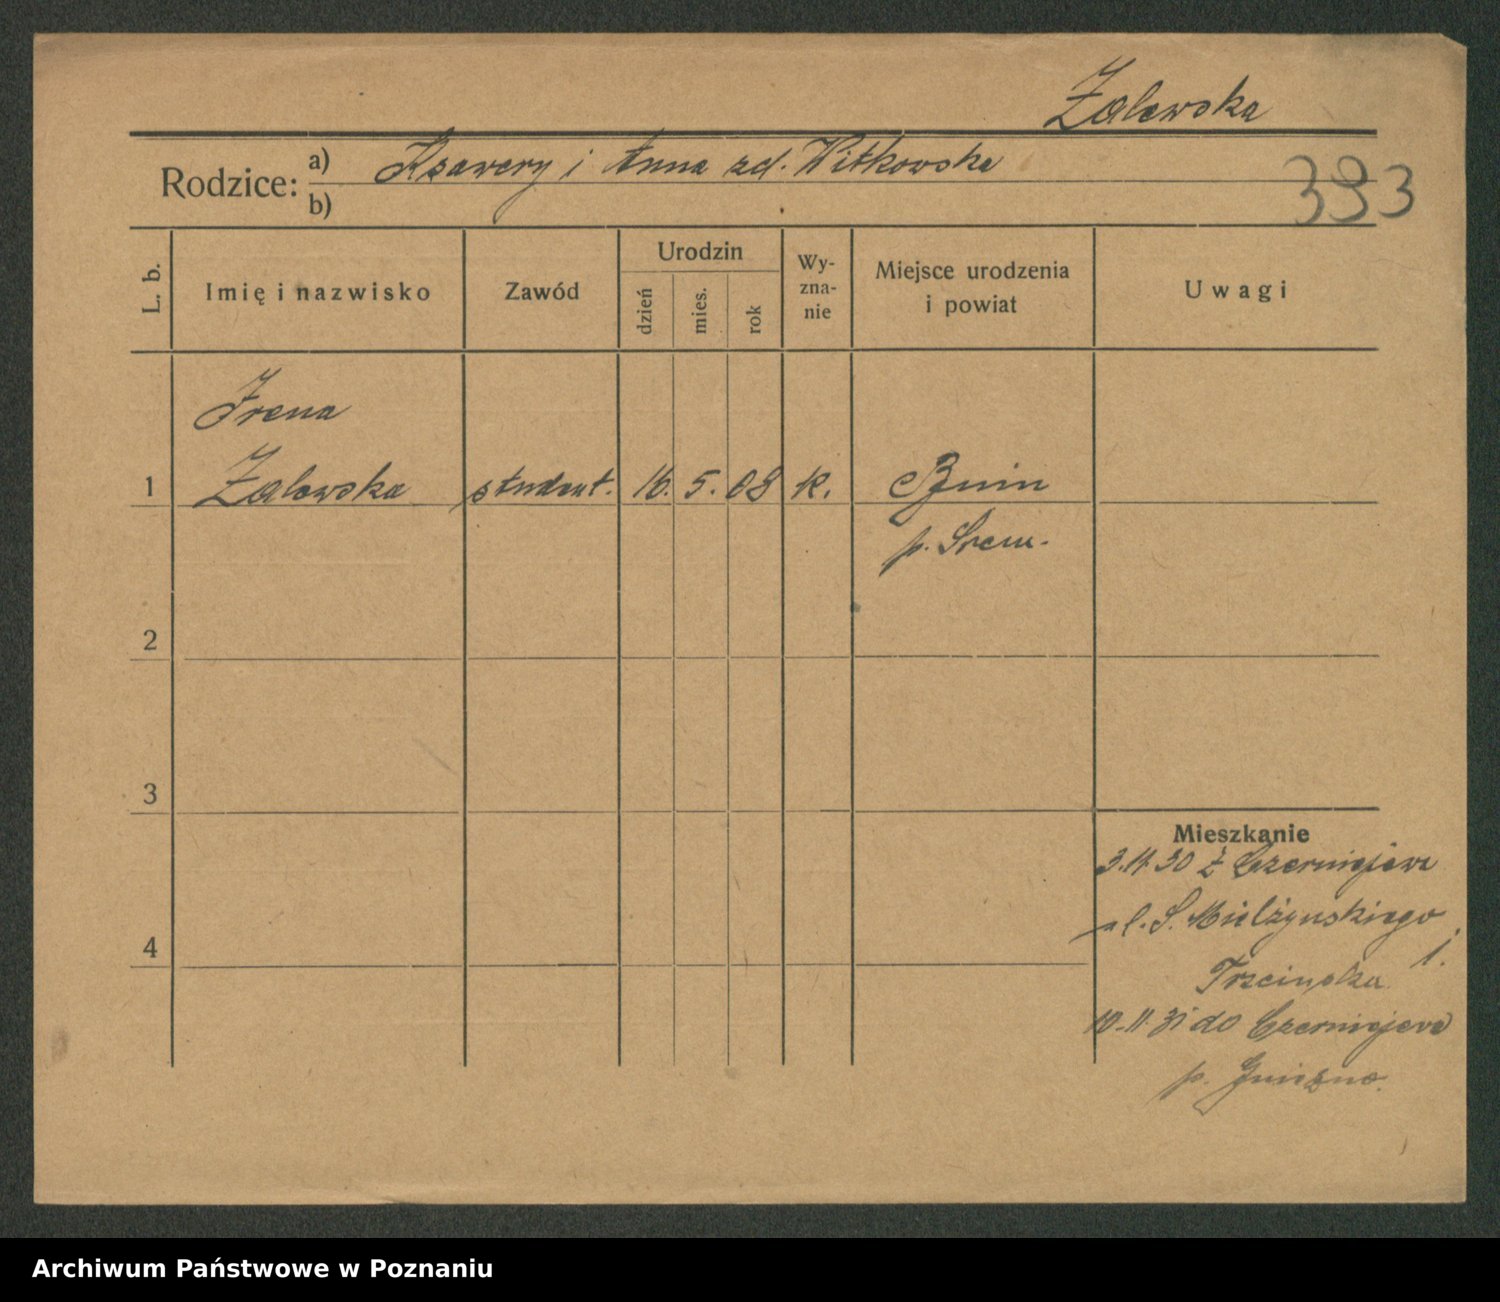 Zalewska
Rodzice: a) Ksawery i Anna zd. Witkowska
b)
393
L. b.
Imię i nazwisko
Zawód
Urodzin
dzień
mies.
rok
Wy-
zna-
nie
Miejsce urodzenia
i powiat
Uwagi
Irena
1 Zalewska student. 16. 5. 08 k. Bnin
p. Śrem.
2
3
4
Mieszkanie
3.11.30 z Czerniejewa
ul. S. Mielżyńskiego
1.
Trzcińska
10-11 31 do Czerniejewa
p. Gniezno.
Archiwum Państwowe w Poznaniu